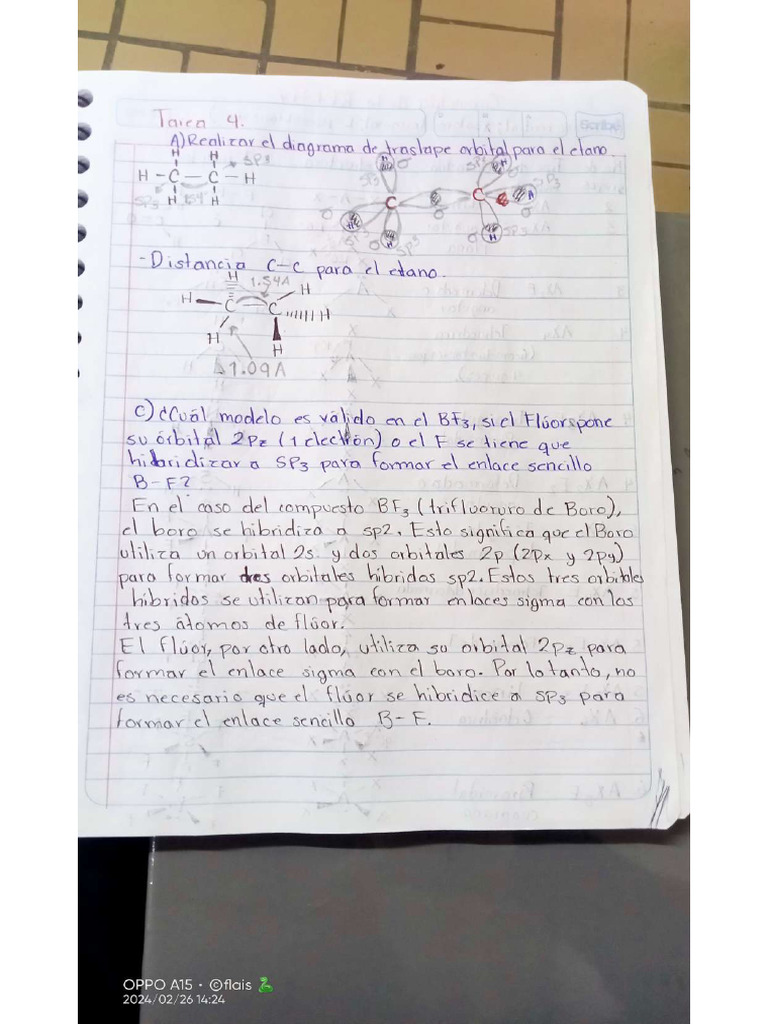 Tarea 4.
A) Realizar el diagrama de traslape orbital para el etano.
H H SP3
H - C - C - H
SP3 H 1.54 H
H σ SP3 H
SP3 C σ C SP3 H
σ H SP3 H σ SP3 σ H SP3
- Distancia C-C para el etano.
H 1.54A H
H C - C H
H H
1.09A
C) ¿Cuál modelo es válido en el BF3, si el Flúor pone
su órbital 2Pz (1 electrón) o el F se tiene que
hibridizar a SP3 para formar el enlace sencillo
B-F?
En el caso del compuesto BF3 (trifluoruro de Boro),
el boro se hibridiza a sp2. Esto significa que el Boro
utiliza un orbital 2s y dos orbitales 2p (2px y 2py)
para formar tres orbitales hibridos sp2. Estos tres orbitales
hibridos se utilizan para formar enlaces sigma con los
tres átomos de flúor.
El flúor, por otro lado, utiliza su orbital 2pz para
formar el enlace sigma con el boro. Por lo tanto, no
es necesario que el flúor se hibridice a SP3 para
formar el enlace sencillo B-F.
Scribe
OPPO A15 · ©flais
2024/02/26 14:24